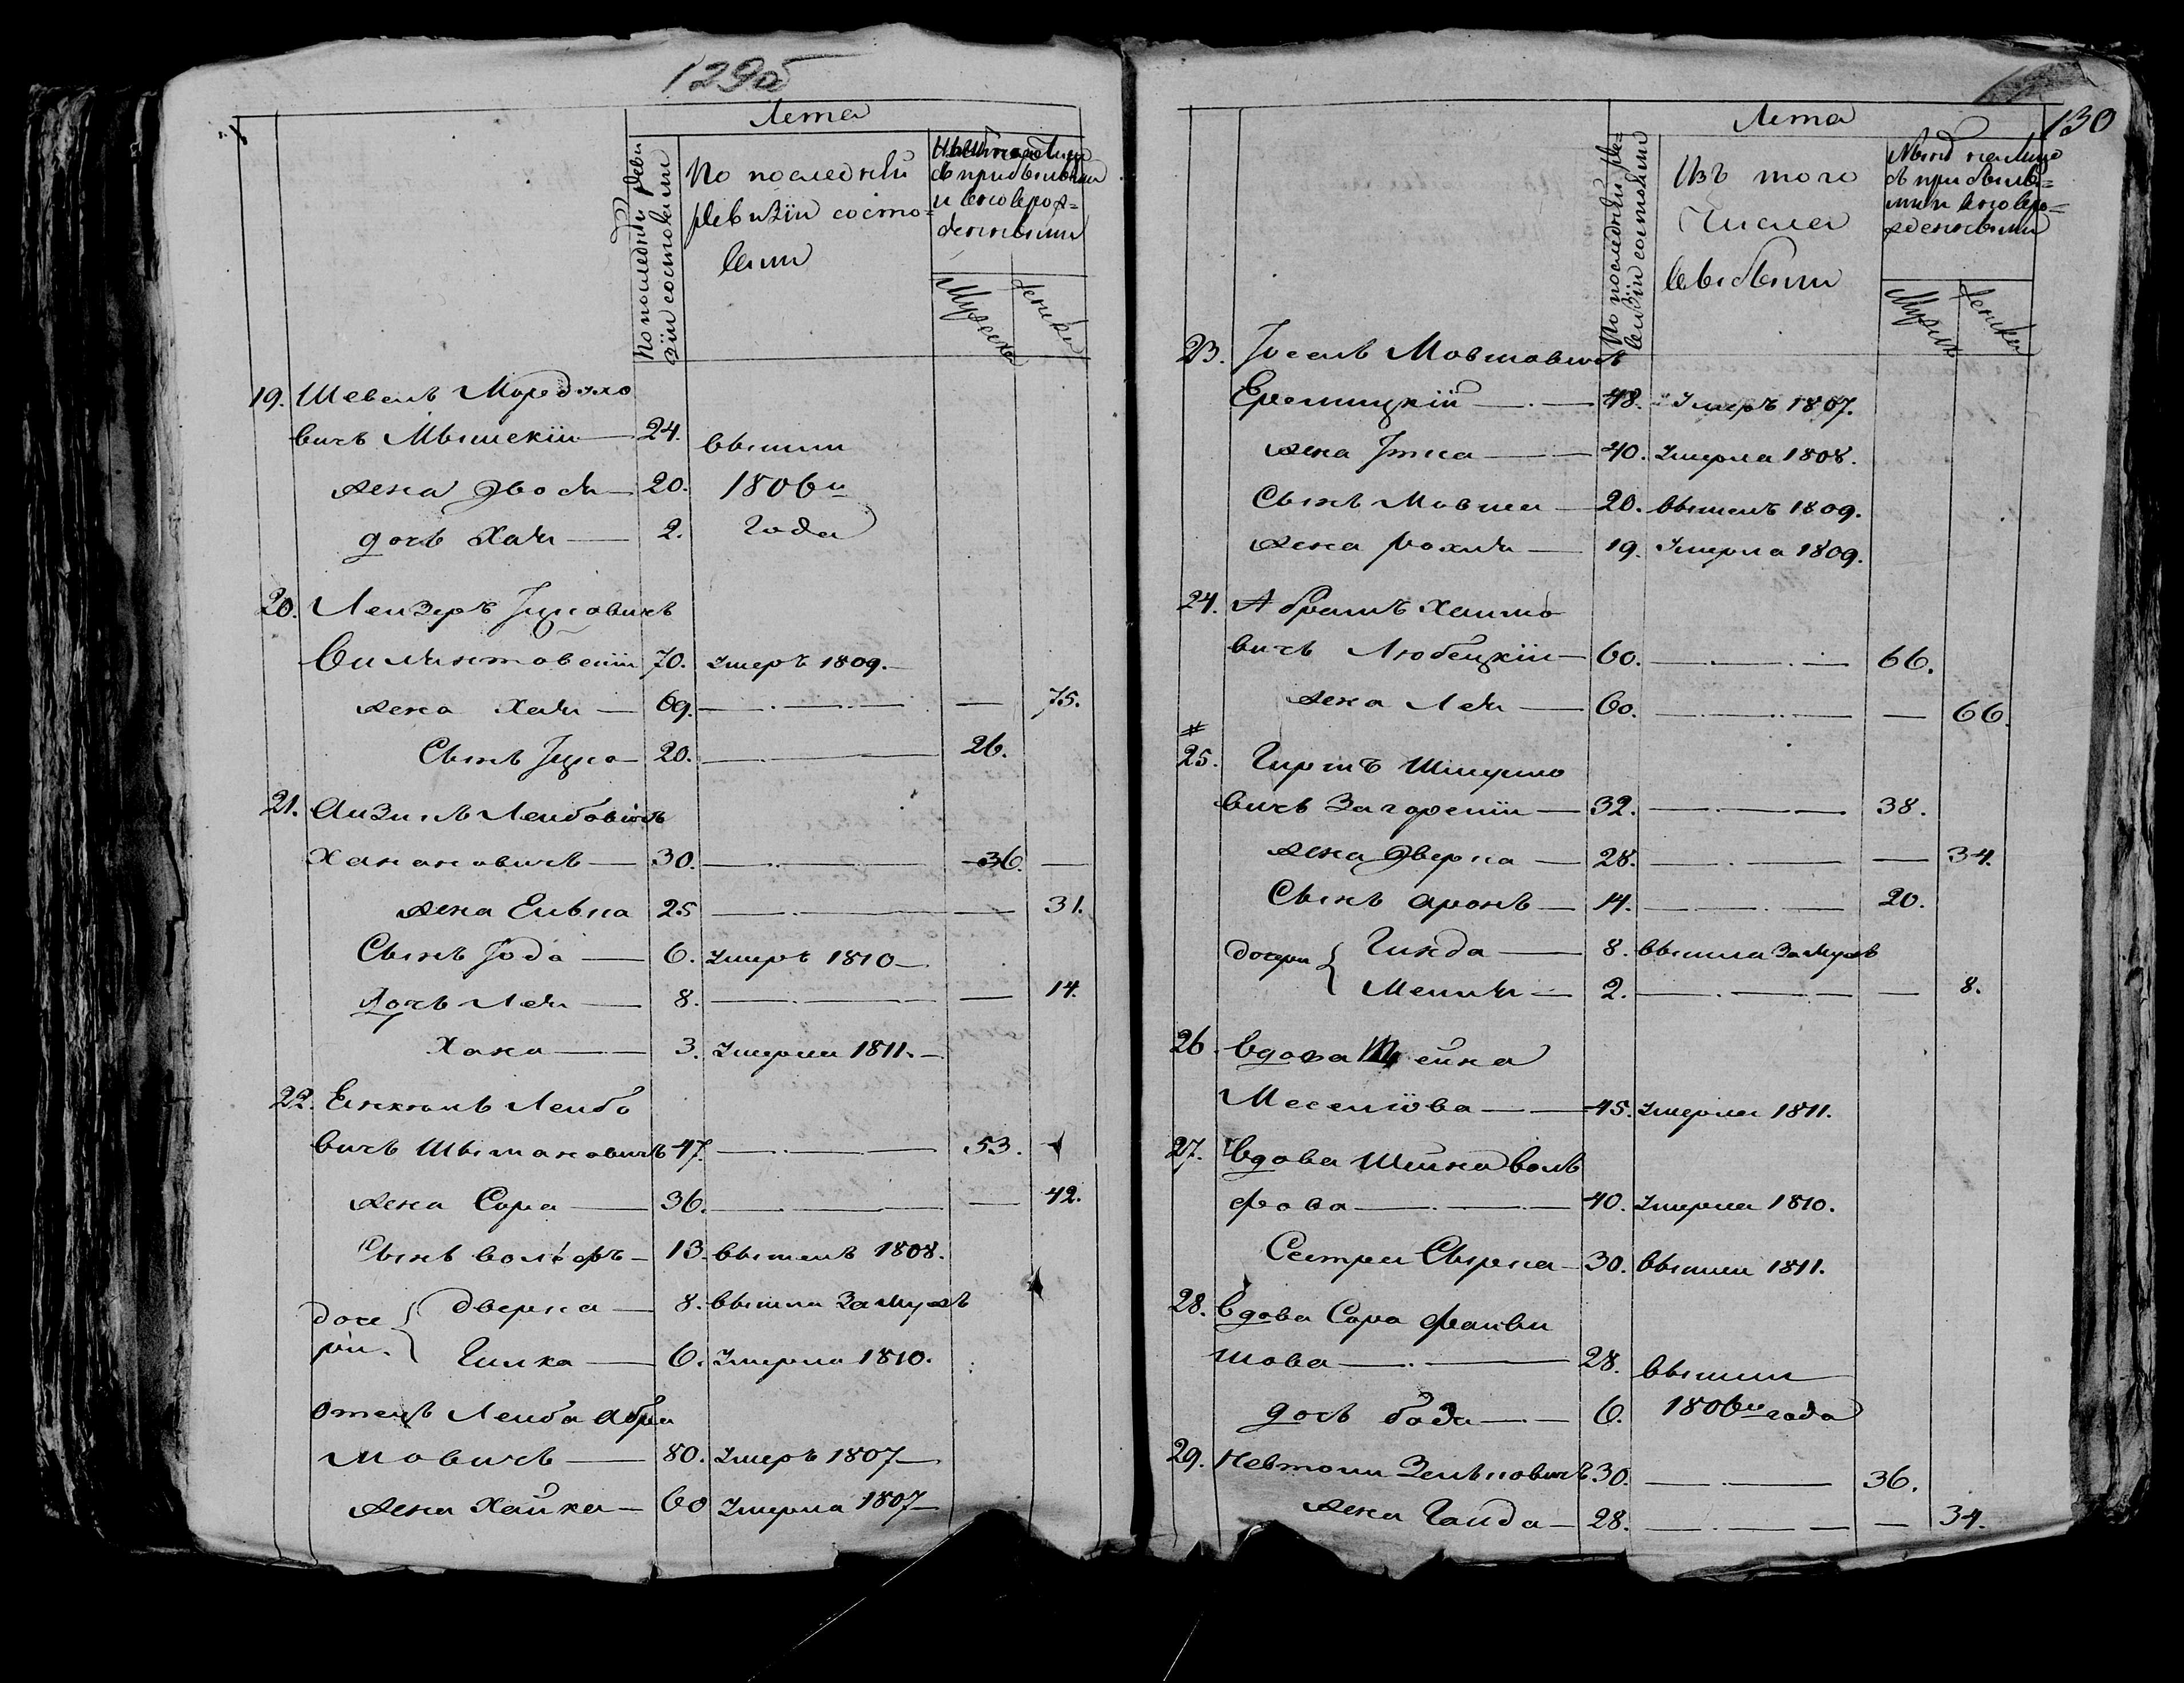 129об
Лета
По последней реви
зіи состояли
По последней
ревизіи состо=
яли
Ныне на лицо
съ прибылыми
и новорож=
денными
Мужеска
женска
19. Шевель Мордухо
вичъ Мышскій 24. вышли
жена Двося 20. 1806го
дочь Хая 2. года
20. Лейзеръ Ицковичъ
70. умеръ 1809.
жена Хая 69. 75.
Сынъ Ицко 20. 26.
21. Айзикъ Лейбовичъ
Ханановичъ 30. 36.
жена Енька 25 31.
Сынъ Іода 6. умеръ 1810
Дочь Лея 8. 14.
Хана 3. умерла 1811.
22. Лейбо
вичъ Шымановичъ 47. 53.
жена Сора 36. 42.
Сынъ Вольфъ 13. вышелъ 1808.
доче
ри. Дверка 8. вышла Замужъ
Гинка 6. умерла 1810.
Отецъ Лейба Абра
мовичъ 80. умеръ 1807
жена Хайка 60 умерла 1807
130
Лета
По последней ре=
визіи состояли
Изъ того
Числа
выбыли
Ныне на лицо
съ прибылы=
ми и новоро=
жденными
Мужск
женска
23. Іосель Мовшовичъ
48. умеръ 1807.
жена Итка 40. умерла 1808.
Сынъ Мовша 20. вышелъ 1809.
жена Рохля 19. умерла 1809.
24. Абрамъ Хаимо
вичъ Любецкій 60. 66.
жена Лея 60. 66.
#
25. Гиршъ Шмуйло
вичъ Загорскій 32. 38.
жена Дверка 28. 34.
Сынъ Аронъ 14. 20.
дочери Гинда 8. вышла Замужъ
2. 8.
26. Вдова Шейна
45. умерла 1811.
27. Вдова Шейна Воль
фова 40. умерла 1810.
Сестра Сырка 30. вышла 1811.
28. Вдова Сора Файви
шова 28. вышли
дочь 6. 1806го года
29. Невтоли Зельковичъ 30. 36.
жена 28. 34.